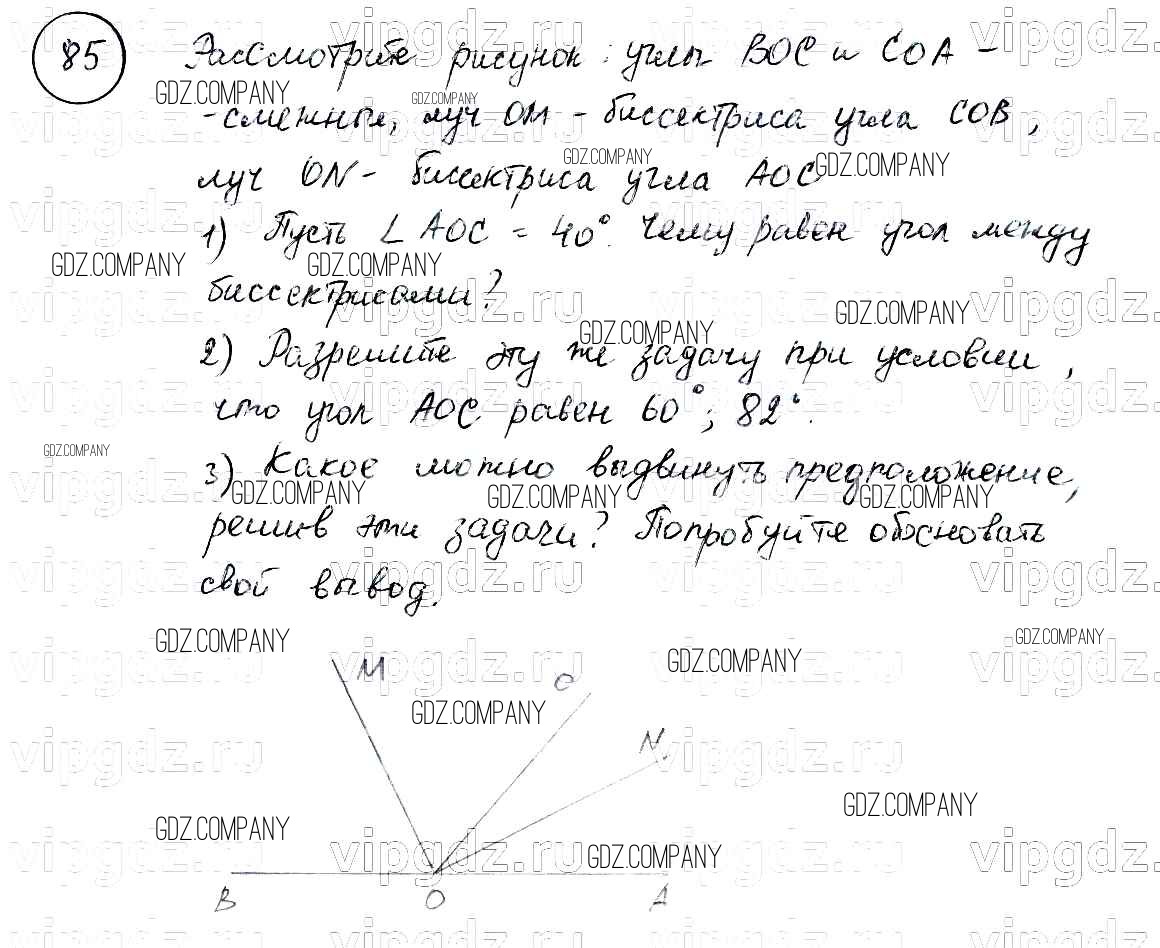 85 Рассмотрите рисунок: углы BOC и COA –
- смежные, луч OM - биссектриса угла COB,
луч ON - биссектриса угла AOC
1) Пусть ∠AOC = 40°. Чему равен угол между
биссектрисами?
2) Разрешите эту же задачу при условии,
что угол AOC равен 60°; 82°.
3) Какое можно выдвинуть предположение,
решив эти задачи? Попробуйте обосновать
свой вывод.
M
C
N
B O A
GDZ.COMPANY
vipgdz.ru